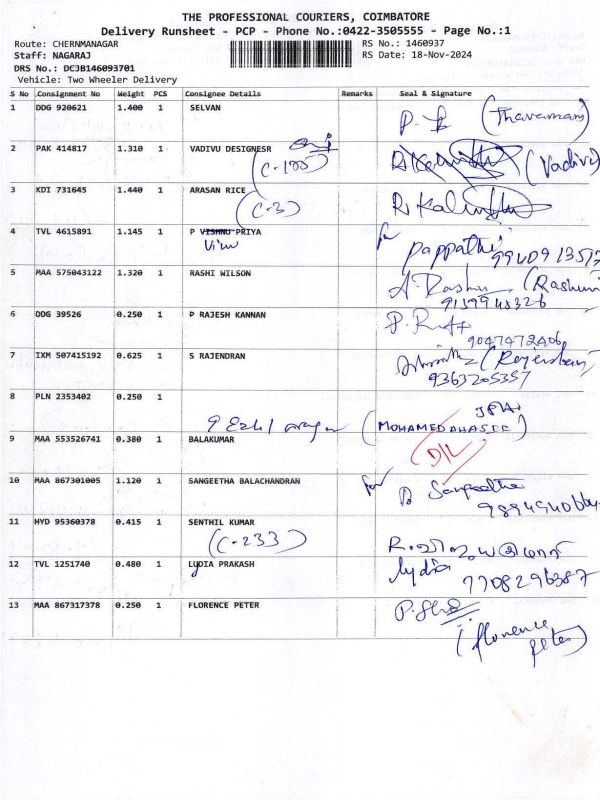 THE PROFESSIONAL COURIERS, COIMBATORE
Delivery Runsheet - PCP - Phone No.:0422-3505555 - Page No.:1
Route: CHERNMANAGAR RS No.: 1460937
Staff: NAGARAJ RS Date: 18-Nov-2024
DRS No.: DCJB146093701
Vehicle: Two Wheeler Delivery
S No Consignment No Weight PCS Consignee Details Remarks Seal & Signature
1 DDG 920621 1.400 1 SELVAN
(Thavamani)
2 PAK 414817 1.310 1 VADIVU DESIGNESR
(Vadivu)
3 KDI 731645 1.440 1 ARASAN RICE
(C-3)
4 TVL 4615891 1.145 1 P VISHNU PRIYA
for Pappathi
5 MAA 575043122 1.320 1 RASHI WILSON
6 DDG 39526 0.250 1 P RAJESH KANNAN
7 IXM 507415192 0.625 1 S RAJENDRAN
9363205357
8 PLN 2353402 0.250 1
(MOHAMED
9 MAA 553526741 0.380 1 BALAKUMAR
(D/L)
10 MAA 867301005 1.120 1 SANGEETHA BALACHANDRAN
for Sangeetha
11 HYD 95360378 0.415 1 SENTHIL KUMAR
(C-233)
12 TVL 1251740 0.480 1 LUDIA PRAKASH
lydia
7708296387
13 MAA 867317378 0.250 1 FLORENCE PETER
(florence
peter)